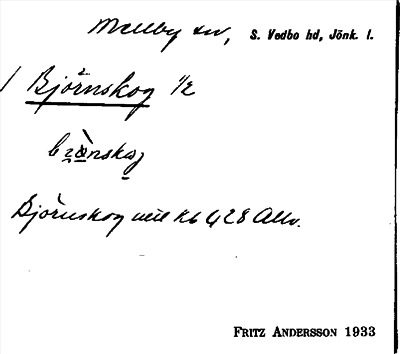 Mellby sn, S. Vedbo hd, Jönk. l.
/ Björnskog 1/2
Björnskog mtl Kb 4,28 Allm.
FRITZ ANDERSSON 1933